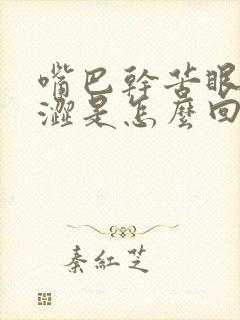 嘴巴幹苦眼
澀是怎麼回
秦紅芝